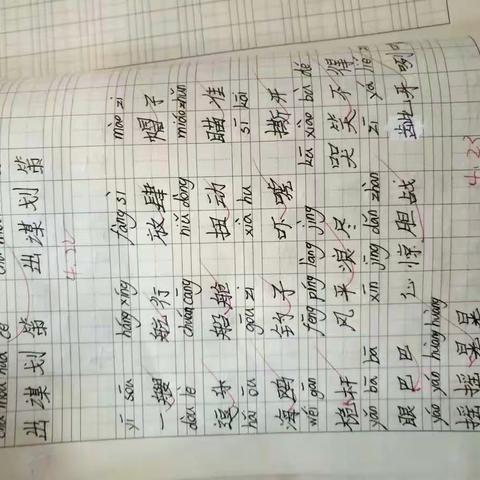 chū móu huà cè
出谋划策 出谋划策
4.22
yī sōu háng xíng fàng sì mào zi
一艘 航行 放肆 帽子
dòu lè chuán cāng niǔ dòng miáo zhǔn
逗乐 船舱 扭动 瞄准
hǎi ōu gōu zi xià hu sī kāi
海鸥 钩子 吓唬 撕开
wéi gān fēng píng làng jìng kū xiào bù dé
桅杆 风平浪尽 哭笑不得
yǎn bā bā xīn jīng dǎn zhàn zī yá liě
眼巴巴 心惊胆战 龇牙咧
yáo yáo huàng huàng
摇摇晃晃
4.23